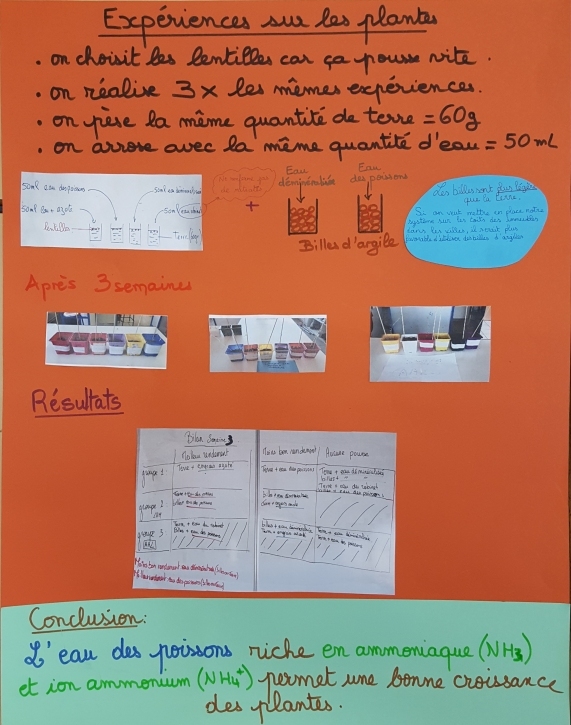 Expériences sur les plantes
. on choisit les lentilles car ça pousse vite .
. on réalise 3x les mêmes expériences.
. on pèse la même quantité de terre = 60g
. on arrose avec la même quantité d'eau = 50 mL
50ml eau des poissons
50ml Eau + azote
lentilles
+
Eau déminéralisée
Eau des poissons
Billes d'argile
Les billes sont plus légères
que la terre.
Si on veut mettre en place notre
système sur les toits des immeubles
dans les villes, il serait plus
favorable d'utiliser des billes d'argiles
Après 3 semaines
Résultats
Bilan Semaine 3
Meilleur rendement
Moins bon rendement
Aucune pousse
groupe 1
Terre + engrais azoté
Terre + eau des poissons
Terre + eau déminéralisée
Terre + eau du robinet
groupe 2
billes + eau déminéralisée
groupe 3
Terre + eau du robinet
Billes + eau des poissons
billes + eau déminéralisée
Terre + engrais azoté
Terre + eau déminéralisée
Terre + eau des poissons
Conclusion:
L'eau des poissons riche en ammoniaque (NH3)
et ion ammonium (NH4+) permet une bonne croissance
des plantes.